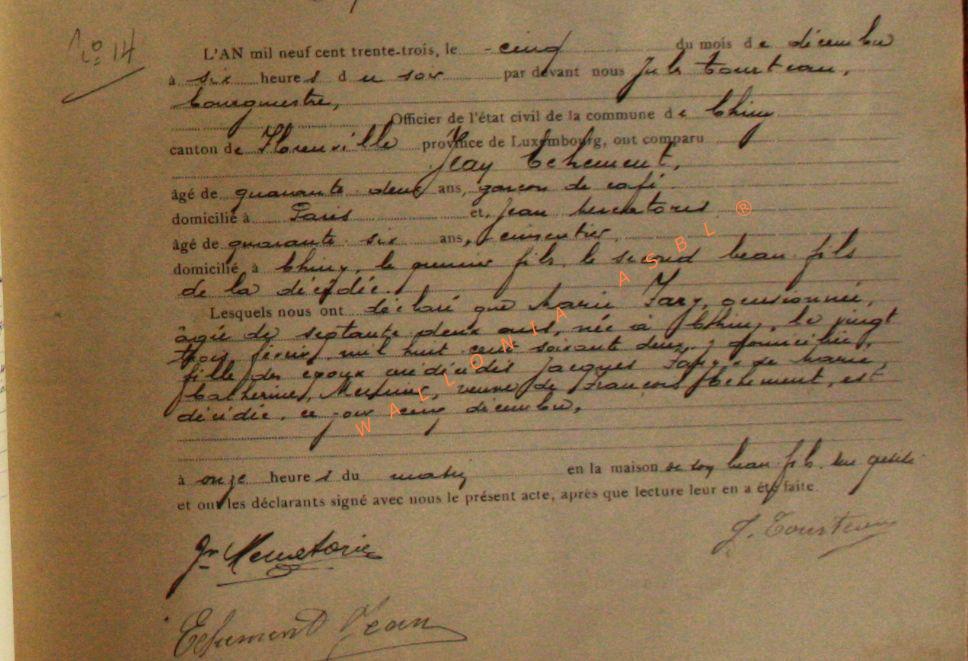 N° 14
L'AN mil neuf cent trente-trois, le cinq du mois de décembre
à six heures du soir par devant nous Jules Tourteau,
bourgmestre,
Officier de l'état civil de la commune de Chiny
canton de Florenville province de Luxembourg, ont comparu
Jean Echement,
âgé de quarante deux ans, garçon de café
domicilié à Paris et, Jean
âgé de quarante six ans, cimentier,
domicilié à Chiny, le premier fils, le second beau fils
de la décédée.
Lesquels nous ont déclaré que Marie Jary, pensionnée,
âgée de septante deux ans, née à Chiny, le vingt
trois février mil huit cent soixante deux, y domiciliée,
fille des époux décédés Jacques Jary, de Marie
Catherine, veuve de François Echement, est
décédée, ce jour cinq décembre,
à onze heures du matin en la maison de son beau fils
et ont les déclarants signé avec nous le présent acte, après que lecture leur en a été faite
J. Tourteau
Echement Jean
WALLONIA ASBL ®